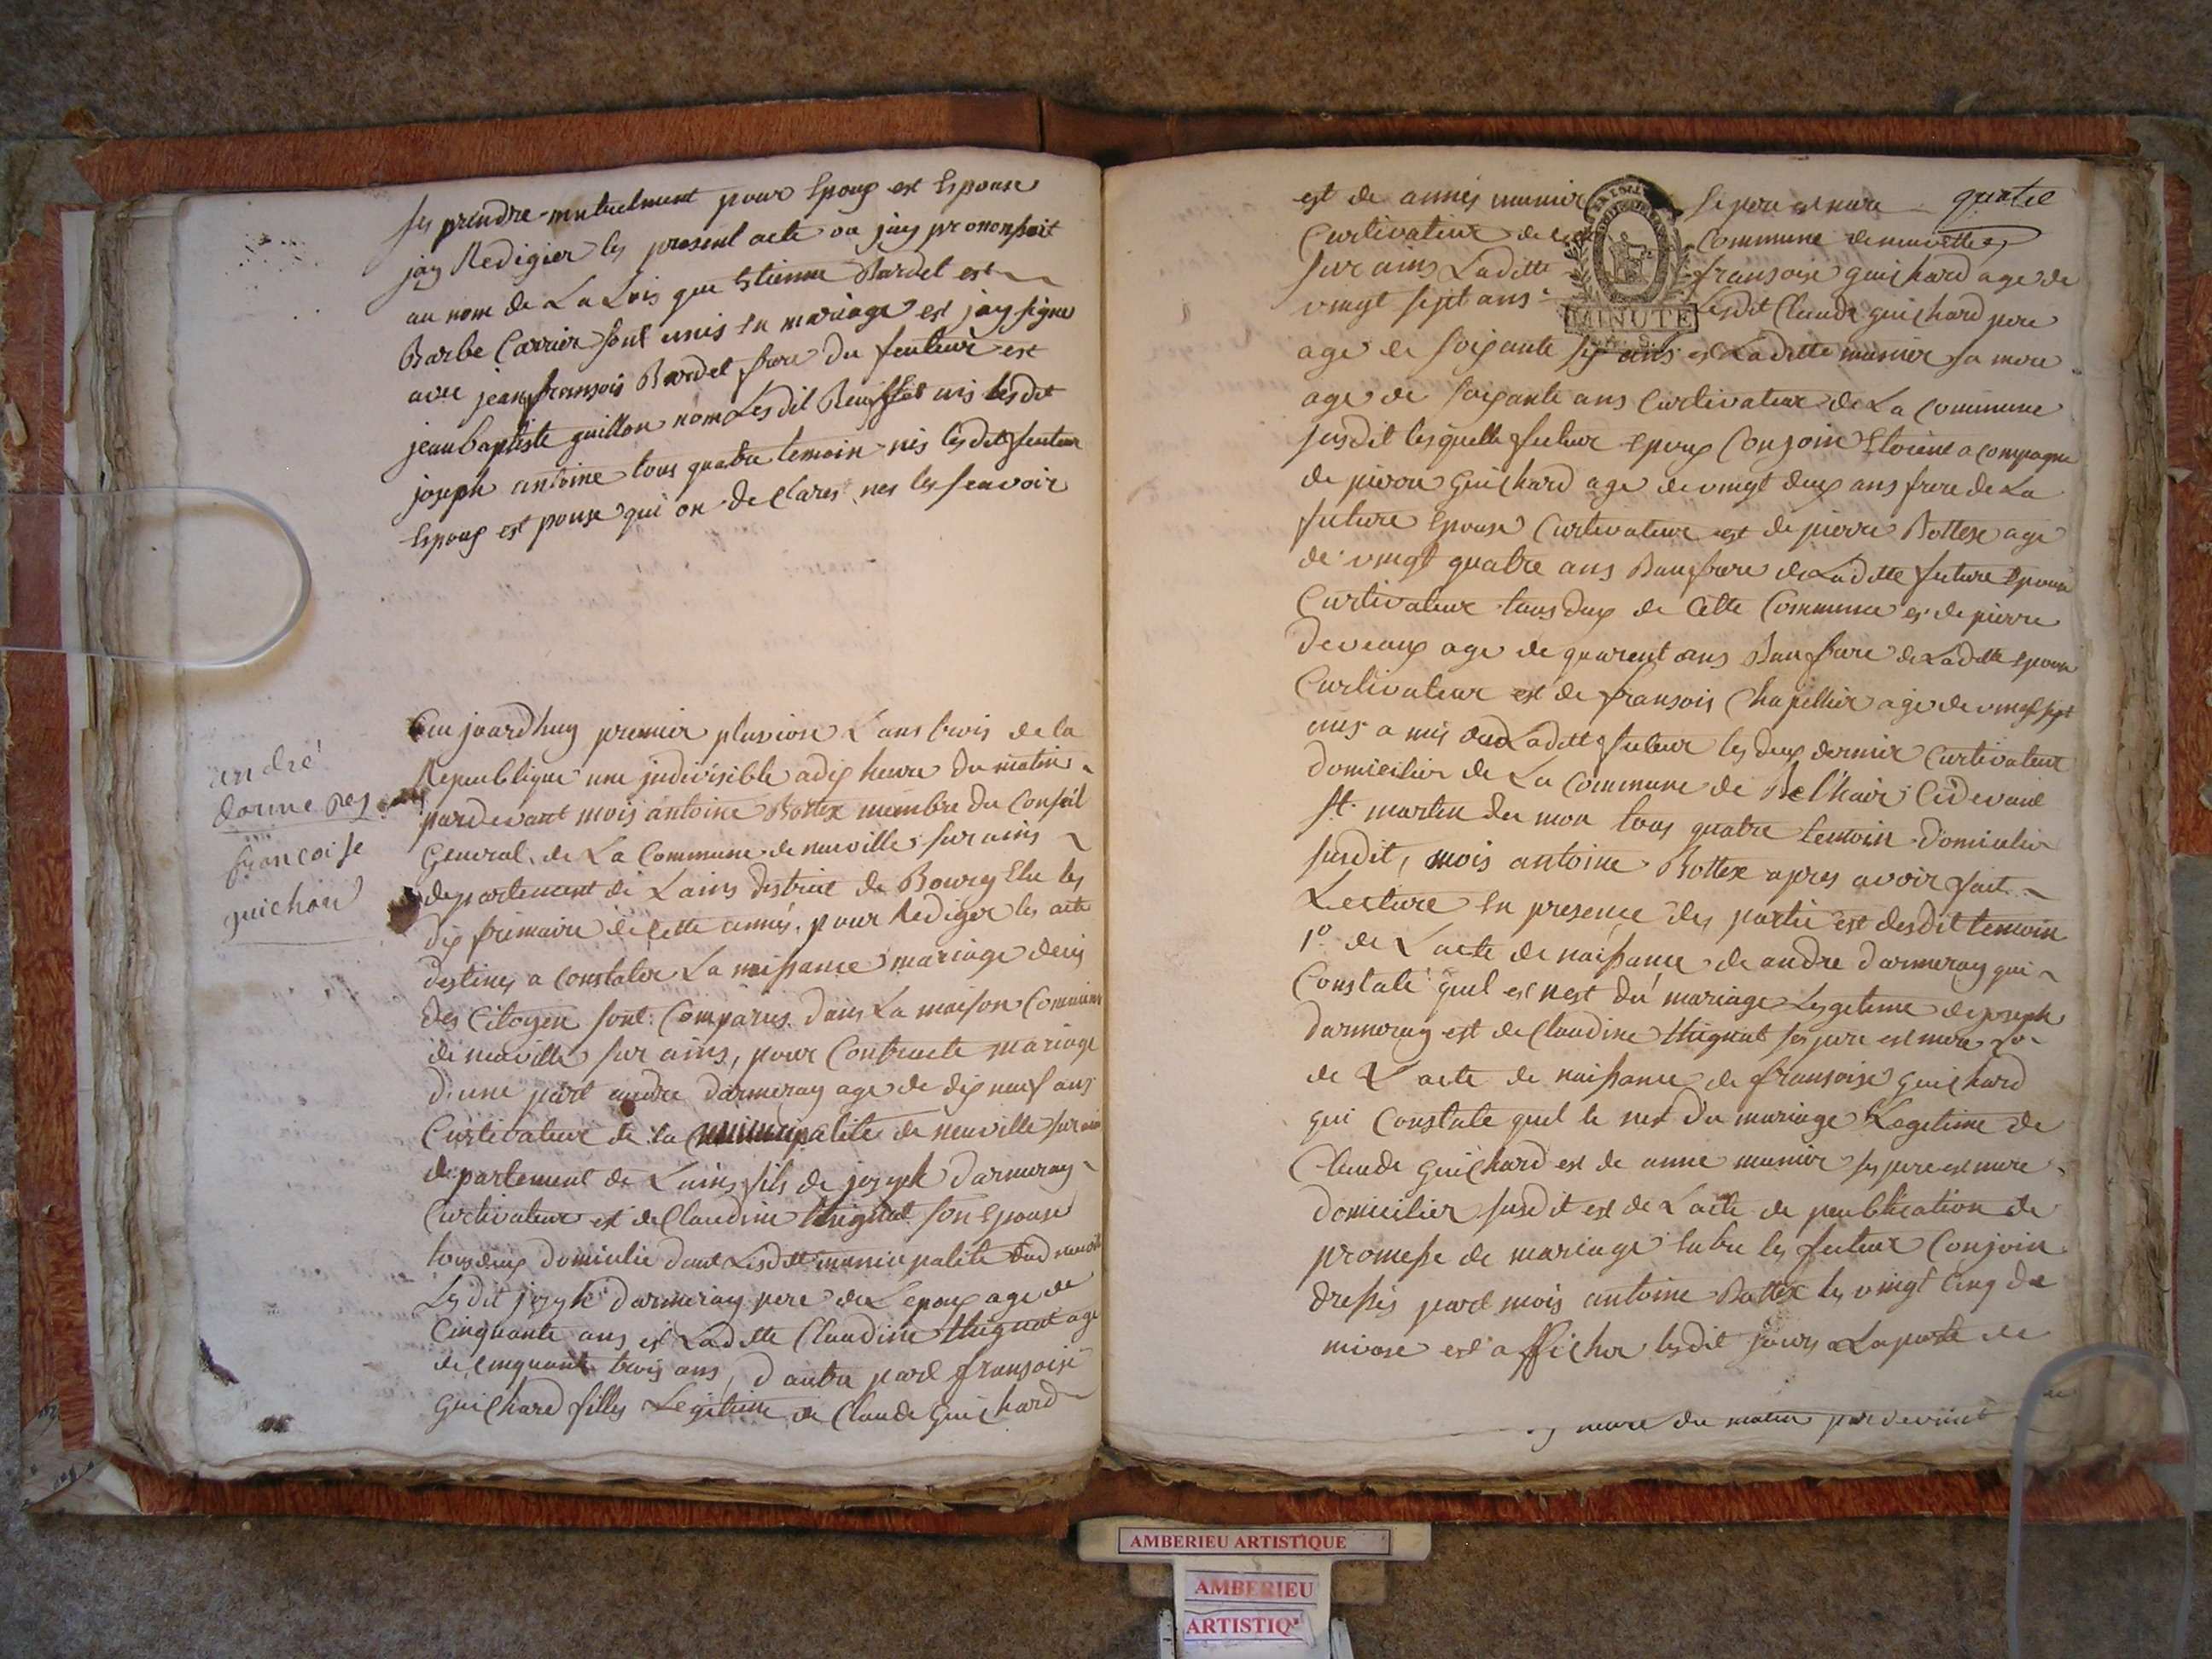 ses prendre mutuelment pour Epoux est Espouse
jay Redigier les present acte ou jay prononssait
au nom de La Lois que Estienne Bardel est
Barbe Carrier sont unis en mariage est jay signe
avec jean fransois Bardel frere du feuteur est
jean baptiste guillon nom Lesdit nis lesdit
joseph antoine tous quatre temoin nis lesdit feuteur
Espoux est pouse qui on declares nes les seavoir
andré
darmeres
francoise
guichard
Cau jourdhuy premier pluviose Lans trois de la
Republique une indivisible a dix heure du matin
pardevant mois antoine Bottex membre du Conseil
General de La Commune de neuville sur ains
departement de Lains district de Bourg Elu les
dix frimaire de cette année pour Rediger les acte
destines a constater La naissance mariage deces
des Citoyen sont Comparus dans La maison Commune
de neuville sur ains, pour Contracte mariage
d'une part andre darmeray age de dix neuf ans
Curtivateur de la municipalite de neuville sur ain
departement de Lains fils de joseph darmeray
Curtivateur est de Claudine thignat son Epouse
tous deux domicilie dant Lesditte municipalite
Lesdit joseph darmeray pere de Lepoux age de
Cinquante ans est Laditte Claudine thignat age
de cinquant trois ans, dautre part fransoise
Guichard filles Legitime de Claude Guichard
est de annes munier se pere est mere quatre
Curtivateur de Commune de neuville
sur ains Laditte fransoise guichard age de
vingt sept ans Lesdit Claude guichard pere
age de soixante six ans est Laditte munier sa mere
age de soixante ans Curtivateur de La Commune
susdit lesquelle futeur Epoux Conjoin Etoient a compagne
de pierre Guichard age de vingt deux ans frere de La
future Epouse Curtivateur est de pierre Bottex age
de vingt quatre ans Baufrere de Laditte future Epouse
Curtivateur tous deux de Cette Commune est de pierre
deveaux age de quarent ans Baufrere de Laditte Epouse
Curtivateur est de fransois Chapellier age de vingt sept
ans a mis Laditte futeur les deux dernier Curtivateur
domicilier de La Commune de Bel'hair Cidevant
St. martin du mon tous quatre temoin domicilier
susdit, mois antoine Bottex apres avoir fait
Lecture en presence des partie est desdit temoin
1º de Lacte de naissance de andre darmeray qui
Constate quil est nest du mariage Legetime de joseph
darmeray est de Claudine thignat ses pere est mere 2º
de Lacte de naissance de fransoise Guichard
qui Constate quel le nes du mariage Legitime de
Claude Guichard est de anne munier ses pere est mere
domicilier susdit est de Lacte de peublication de
promesse de mariage Entre les futeur Conjoin
dressés pard mois antoine Bottex les vingt cinq de
nivose est afficher lesdit jours a La porte de
du matin pardevant
MINUTE
AMBERIEU ARTISTIQUE
AMBERIEU
ARTISTIQ